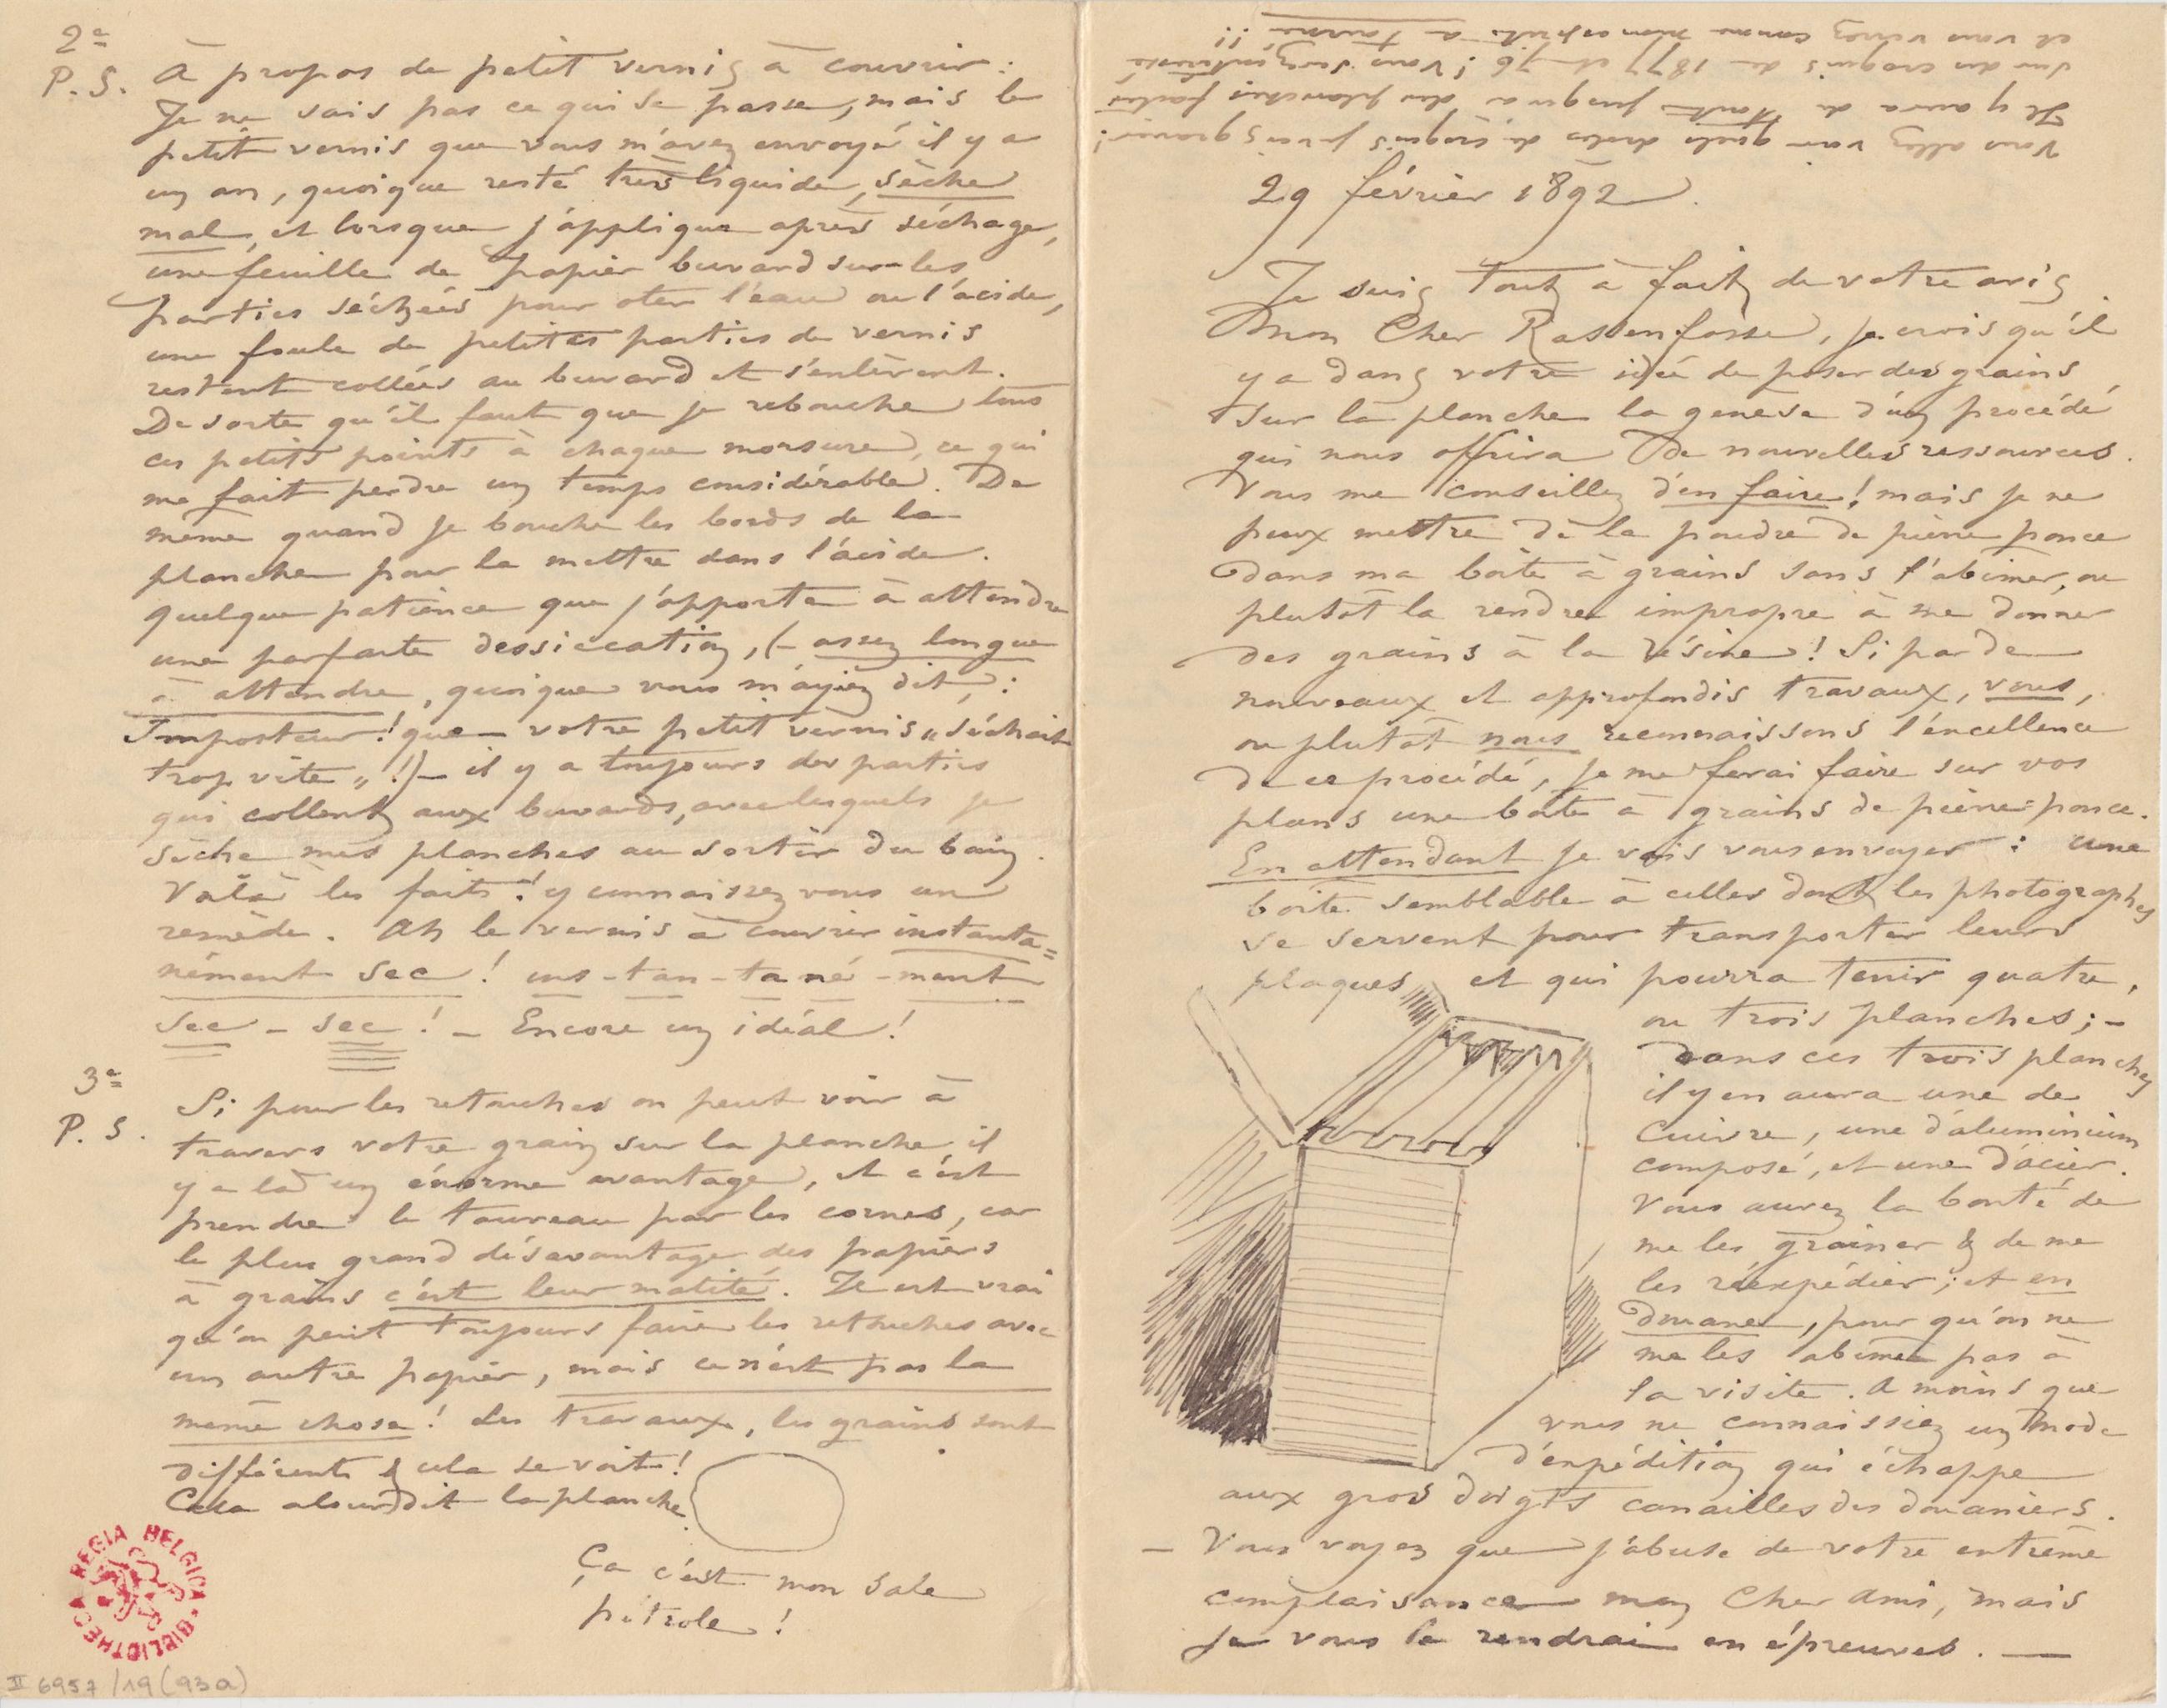 2e
P.S. À propos de petit vernis à couvrir :
Je ne sais pas ce qui se passe, mais le
petit vernis que vous m'avez envoyé il y a
un an, quoique resté très liquide, sèche
mal, et lorsque j'applique après séchage,
une feuille de papier buvard sur les
parties séchées pour oter l'eau ou l'acide,
une foule de petites parties de vernis
restent collées au buvard et s'enlèvent.
De sorte qu'il faut que je rebouche tous
ces petits points à chaque morsure, ce qui
me fait perdre un temps considérable. De
même quand je bouche les bords de la
planche pour la mettre dans l'acide.
quelque patience que j'apporte à attendre
une parfaite dessiccation, (– assez longue
à attendre, quoique vous m'ayiez dit, :
Imposteur ! que – votre petit vernis „séchait
trop vite„ !) – il y a toujours des parties
qui collent aux buvards, avec lesquels je
sèche mes planches au sortir du bain.
Voilà les faits ! y connaissez vous un
remède. Ah le vernis à couvrir instanta=
nément sec ! ins-tan-ta né-ment
sec – sec ! – Encore un idéal !
3e
P.S. Si pour les retouches on peut voir à
travers votre grain sur la planche, il
y a là un énorme avantage, et c'est
prendre le taureau par les cornes, car
le plus grand désavantage des papiers
à grains c'est leur matité. Il est vrai
qu'on peut toujours faire les retouches avec
un autre papier, mais ce n'est pas la
même chose ! Les travaux, les grains sont
différents & cela se voit !
Cela alourdit la planche.
Ça c'est mon sale
pétrole !
II 6957/19 (93a)
BIBLIOTHECA REGIA BELGICA
Vous allez voir quels drôles de croquis je vais graver !
Il y aura de tout jusqu'à des planches faites
sur des croquis de 1877 et 76 ! Vous serez intéressé
et vous verrez comme mon esprit a tourné !!
29 février 1892.
Je suis tout à fait de votre avis
mon Cher Rassenfosse, je crois qu'il
y a dans votre idée de poser des grains
sur la planche la genese d'un procédé
qui nous offrira de nouvelles ressources.
Vous me conseillez d'en faire ! mais je ne
peux mettre de la poudre de pierre ponce
dans ma boîte à grains sans l'abimer, ou
plutôt la rendre impropre à me donner
des grains à la résine ! Si par de
nouveaux et approfondis travaux, vous,
ou plutôt nous reconnaissons l'excellence
de ce procédé, je me ferai faire sur vos
plans une boîte à grains de pierre ponce.
En attendant je vais vous envoyer : une
boîte semblable à celles dont les photographes
se servent pour transporter leurs
plaques et qui pourra tenir quatre,
ou trois planches ; –
dans ces trois planches
il y en aura une de
cuivre, une d'aluminium
composé, et une d'acier.
Vous aurez la bonté de
me les grainer & de me
les réexpédier ; et en
douane, pour qu'on ne
me les abime pas à
la visite. A moins que
vous ne connaissiez un mode
d'expédition qui échappe
aux gros doigts canailles des douaniers.
– Vous voyez que j'abuse de votre extrême
complaisance mon Cher Ami, mais
je vous le rendrai en épreuves. —